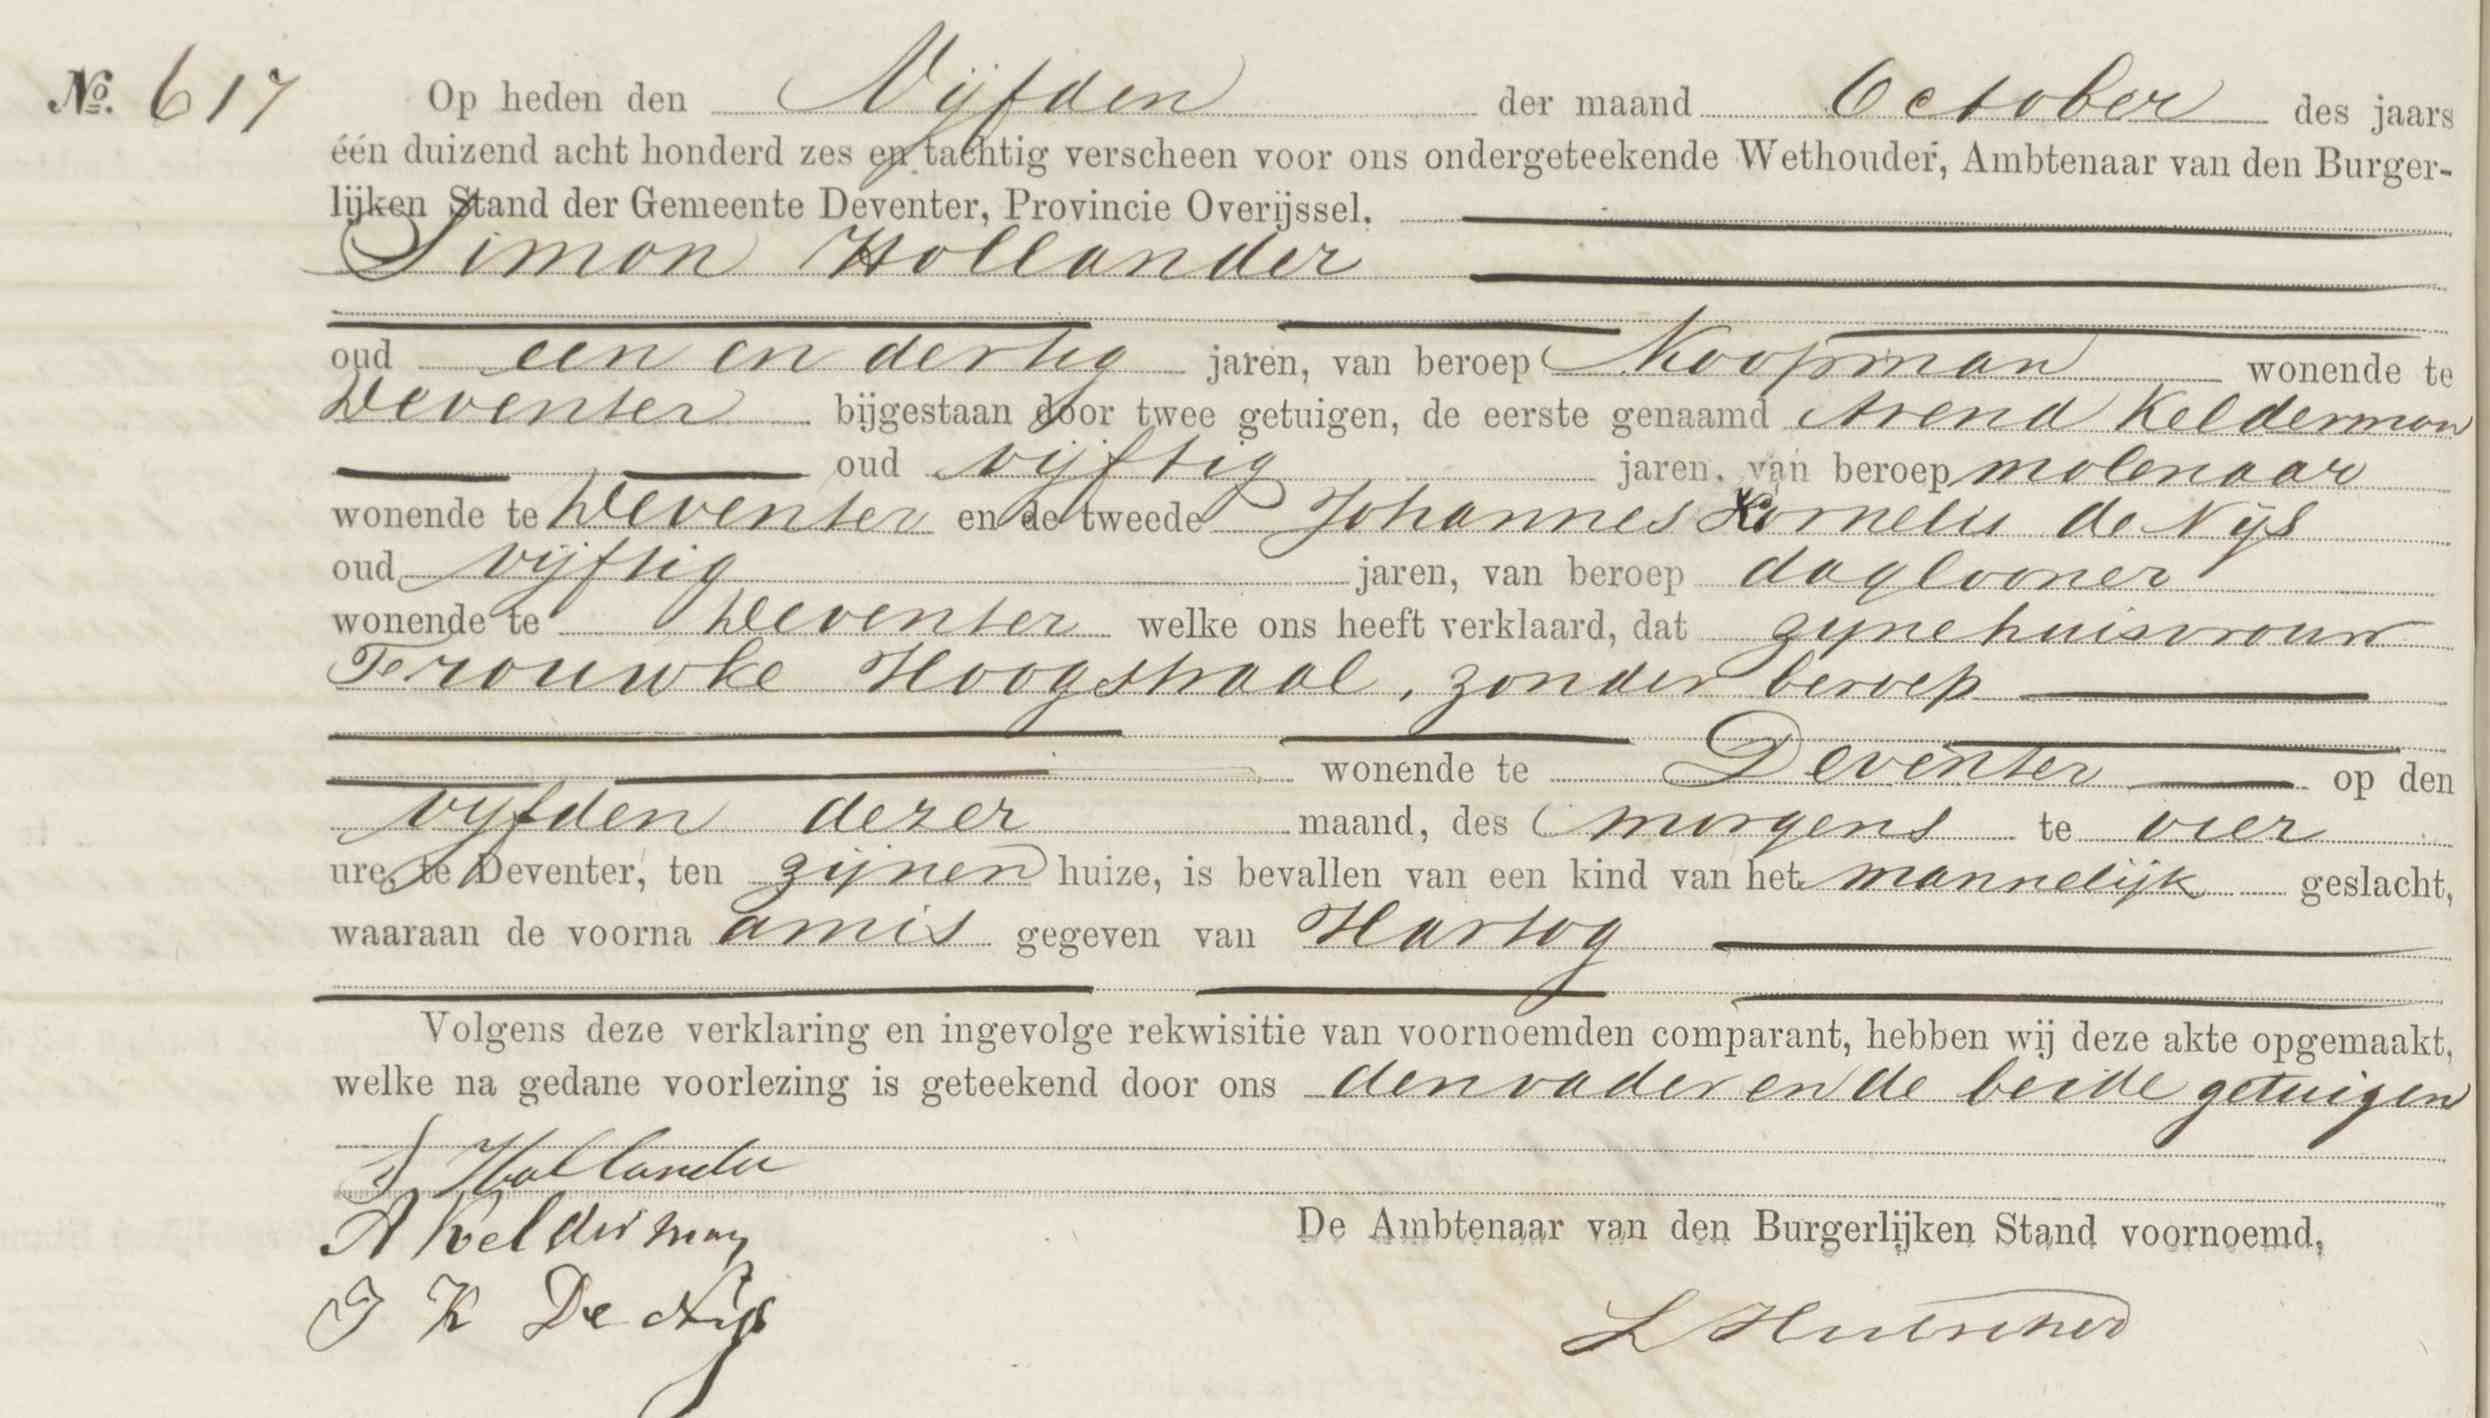 No. 617 Op heden den Vijfden der maand October des jaars
één duizend acht honderd zes en tachtig verscheen voor ons ondergeteekende Wethouder, Ambtenaar van den Burger-
lijken Stand der Gemeente Deventer, Provincie Overijssel.
Simon Hollander
oud een en dertig jaren, van beroep Koopman wonende te
Deventer bijgestaan door twee getuigen, de eerste genaamd Arend Kelderman
oud vijftig jaren, van beroep molenaar
wonende te Deventer en de tweede Johannes Kornelis de Nijs
oud vijftig jaren, van beroep daglooner
wonende te Deventer welke ons heeft verklaard, dat zijne huisvrouw
Frouwke Hoogstraal, zonder beroep
wonende te Deventer op den
vijfden dezer maand, des morgens te vier
ure, te Deventer, ten zijnen huize, is bevallen van een kind van het mannelijk geslacht,
waaraan de voorna amis gegeven van Hartog
Volgens deze verklaring en ingevolge rekwisitie van voornoemden comparant, hebben wij deze akte opgemaakt,
welke na gedane voorlezing is geteekend door ons den vader en de beide getuigen
S Hollander
A Kelderman
De Ambtenaar van den Burgerlijken Stand voornoemd,
J K De Nijs
L